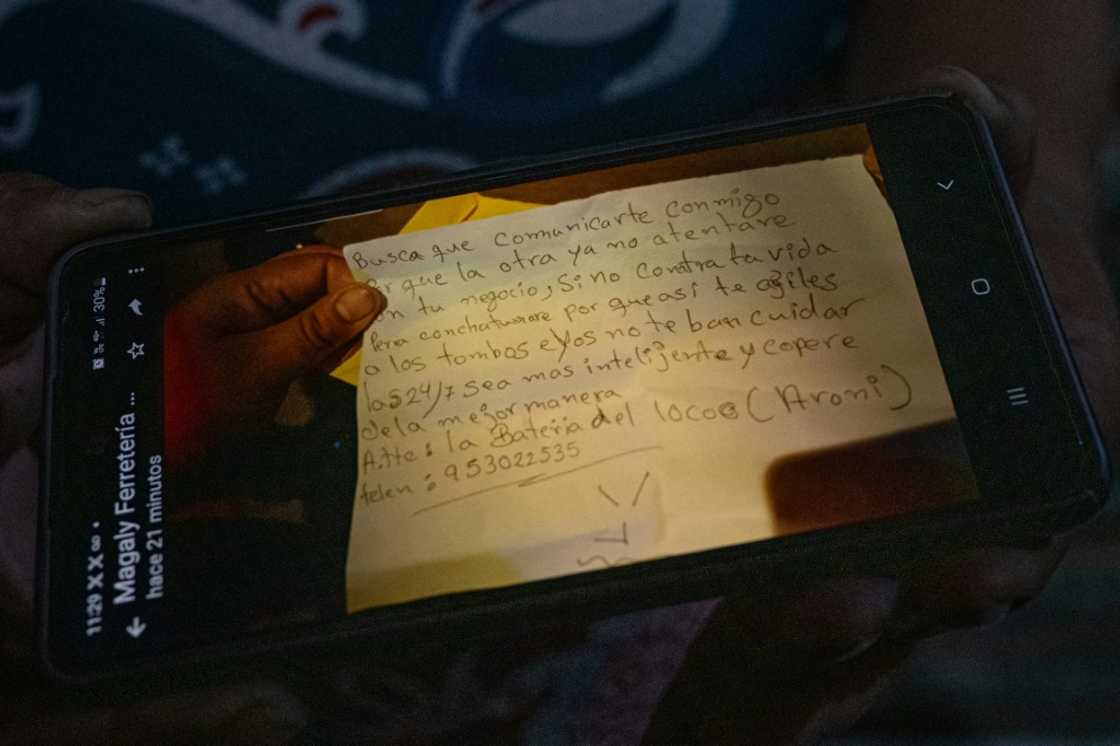 11:29 X X 30%
Magaly Ferretería ...
hace 21 minutos
Busca que comunicarte conmigo
Por que la otra ya no atentare
on tu negocio, Si no contra tu vida
Pera conchatumare por que asi te agiles
a los tombos eYos no te ban cuidar
las 24/7 sea mas intelijente y copere
dela mejor manera
Atte: la Bateria del locoo (Aroni)
telen: 953022535